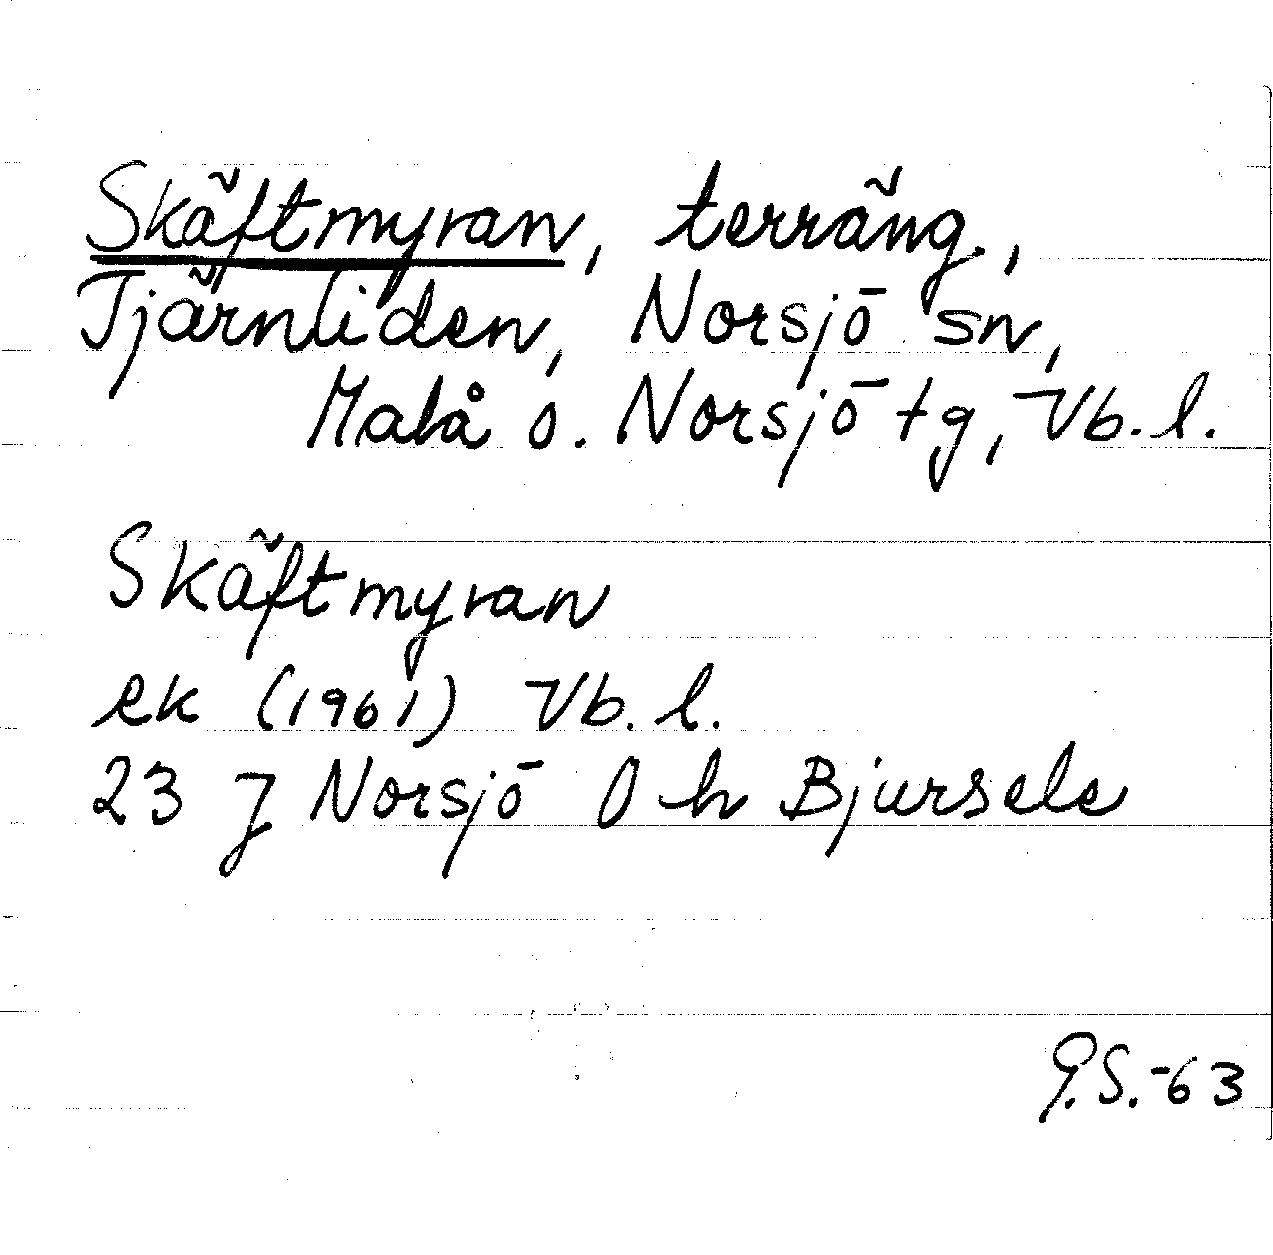 Skäftmyran, terräng.,
Tjärnliden, Norsjö sn,
Malå o. Norsjö tg, Vb. l.
Skäftmyran
ek (1961) Vb. l.
23 J Norsjö 0 h Bjursele
G.S.-63